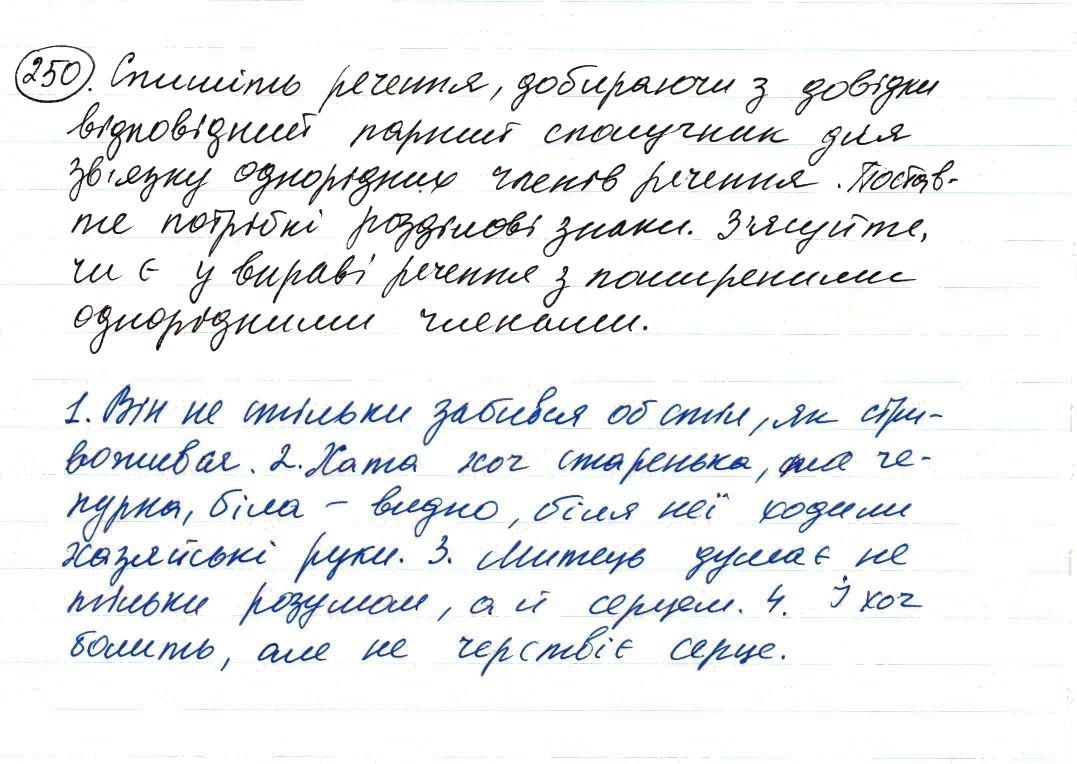 250. Спишіть речення, добираючи з довідки
відповідний парний сполучник для
зв'язку однорідних членів речення. Постав-
те потрібні розділові знаки. З'ясуйте,
чи є у вправі речення з поширеними
однорідними членами.
1. Він не стільки забився об стіл, як стри-
воживвся. 2. Хата хоч старенька, але че-
пурна, біла – видно, біля неї ходили
хазяйські руки. 3. Митець думає не
тільки розумом, а й серцем. 4. І хоч
болить, але не черствіє серце.